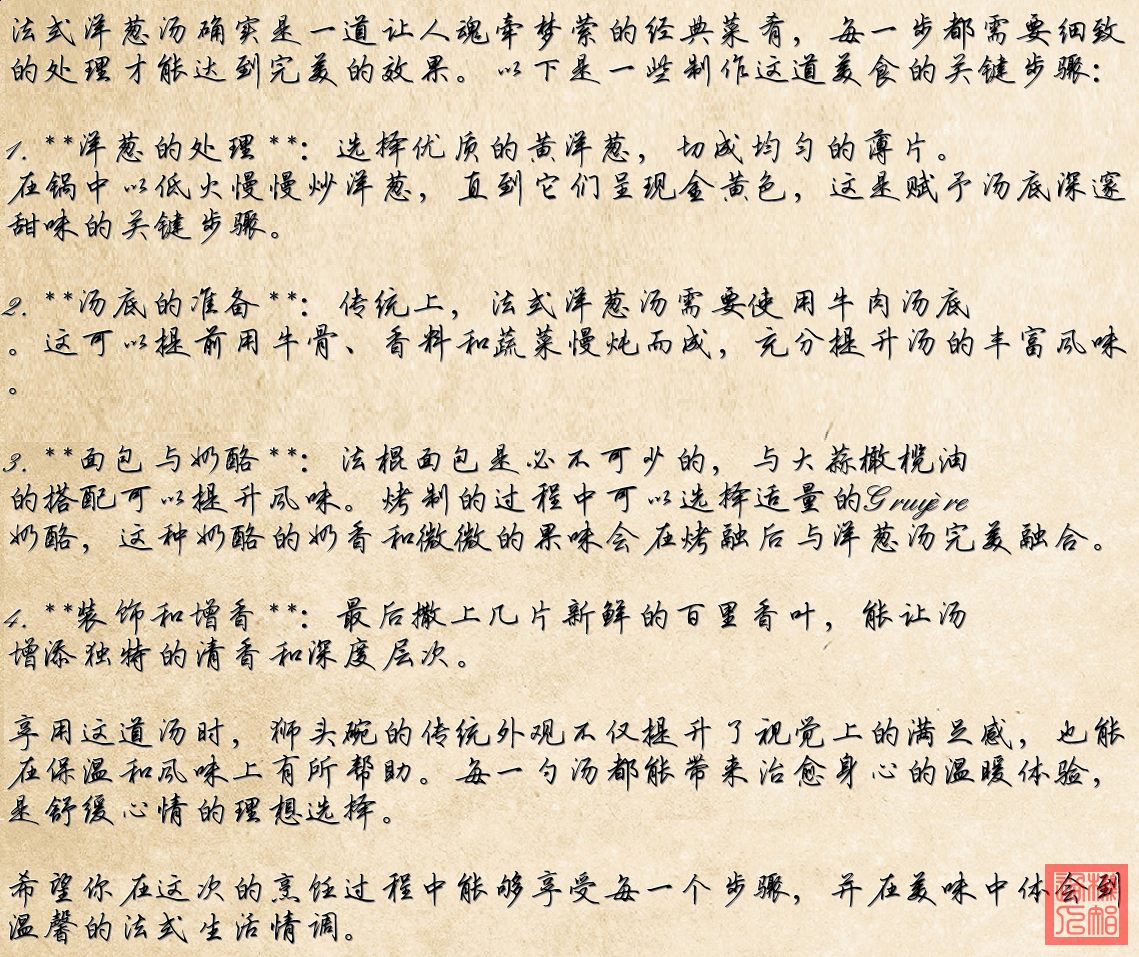 法式洋葱汤确实是一道让人魂牵梦萦的经典菜肴，每一步都需要细致
的处理才能达到完美的效果。以下是一些制作这道美食的关键步骤：
1. **洋葱的处理**：选择优质的黄洋葱，切成均匀的薄片。
在锅中以低火慢慢炒洋葱，直到它们呈现金黄色，这是赋予汤底深邃
甜味的关键步骤。
2. **汤底的准备**：传统上，法式洋葱汤需要使用牛肉汤底
。这可以提前用牛骨、香料和蔬菜慢炖而成，充分提升汤的丰富风味
。
3. **面包与奶酪**：法棍面包是必不可少的，与大蒜橄榄油
的搭配可以提升风味。烤制的过程中可以选择适量的Gruyère
奶酪，这种奶酪的奶香和微微的果味会在烤融后与洋葱汤完美融合。
4. **装饰和增香**：最后撒上几片新鲜的百里香叶，能让汤
增添独特的清香和深度层次。
享用这道汤时，狮头碗的传统外观不仅提升了视觉上的满足感，也能
在保温和风味上有所帮助。每一勺汤都能带来治愈身心的温暖体验，
是舒缓心情的理想选择。
希望你在这次的烹饪过程中能够享受每一个步骤，并在美味中体会到
温馨的法式生活情调。